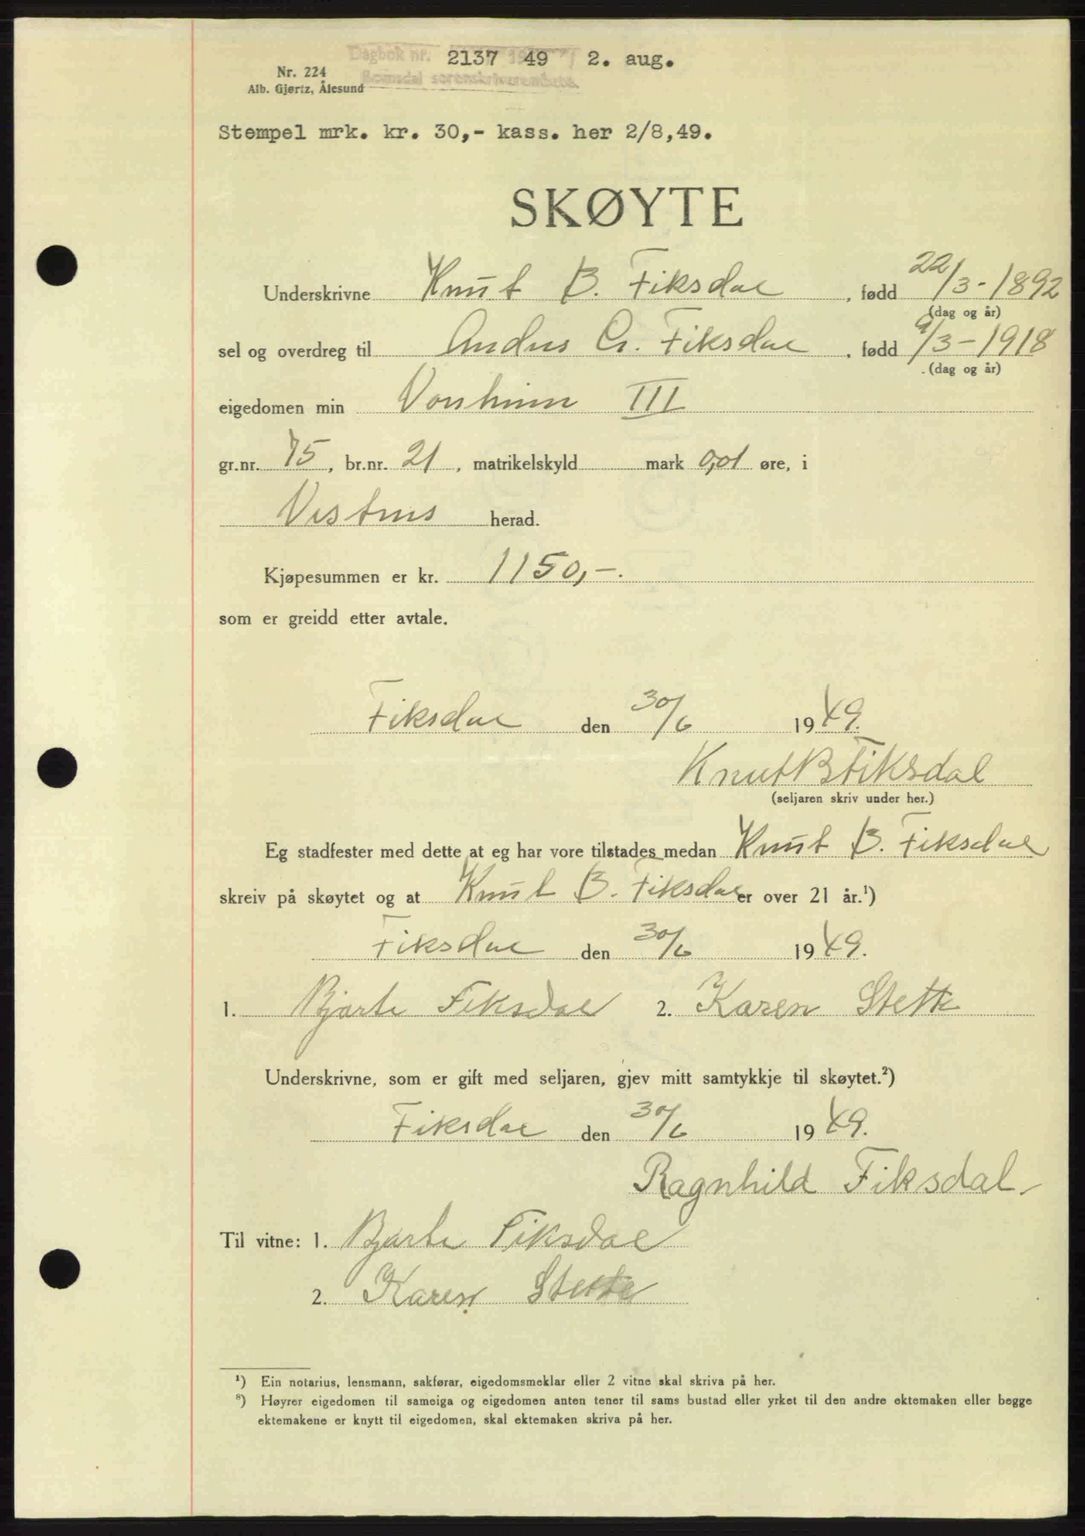 Dagbok nr. 2137 1949 2. aug.
Romsdal sorenskriverembete
Nr. 224
Alb. Gjørtz, Ålesund
Stempel mrk. kr. 30,- kass. her 2/8,49.
SKØYTE
Underskrivne Knut B. Fiksdal, fødd 22/3-1892
(dag og år)
sel og overdreg til Andus G. Fiksdal, fødd 9/3-1918
(dag og år)
eigedomen min III
gr.nr. 75, br.nr. 21, matrikelskyld mark 0,01 øre, i
Vestnes herad.
Kjøpesummen er kr. 1150,-.
som er greidd etter avtale.
Fiksdal den 30/6 1949.
Knut B Fiksdal
(seljaren skriv under her.)
Eg stadfester med dette at eg har vore tilstades medan Knut B. Fiksdal
skreiv på skøytet og at Knut B. Fiksdal er over 21 år.¹)
Fiksdal den 30/6 1949.
1. Bjarte Fiksdal 2. Karen Stette
Underskrivne, som er gift med seljaren, gjev mitt samtykkje til skøytet.²)
Fiksdal den 30/6 1949.
Ragnhild Fiksdal.
Til vitne: 1. Bjarte Fiksdal
2. Karen Stette
¹) Ein notarius, lensmann, sakførar, eigedomsmeklar eller 2 vitne skal skriva på her.
²) Høyrer eigedomen til sameiga og eigedomen anten tener til sams bustad eller yrket til den andre ektemaken eller begge
ektemakene er knytt til eigedomen, skal ektemaken skriva på her.